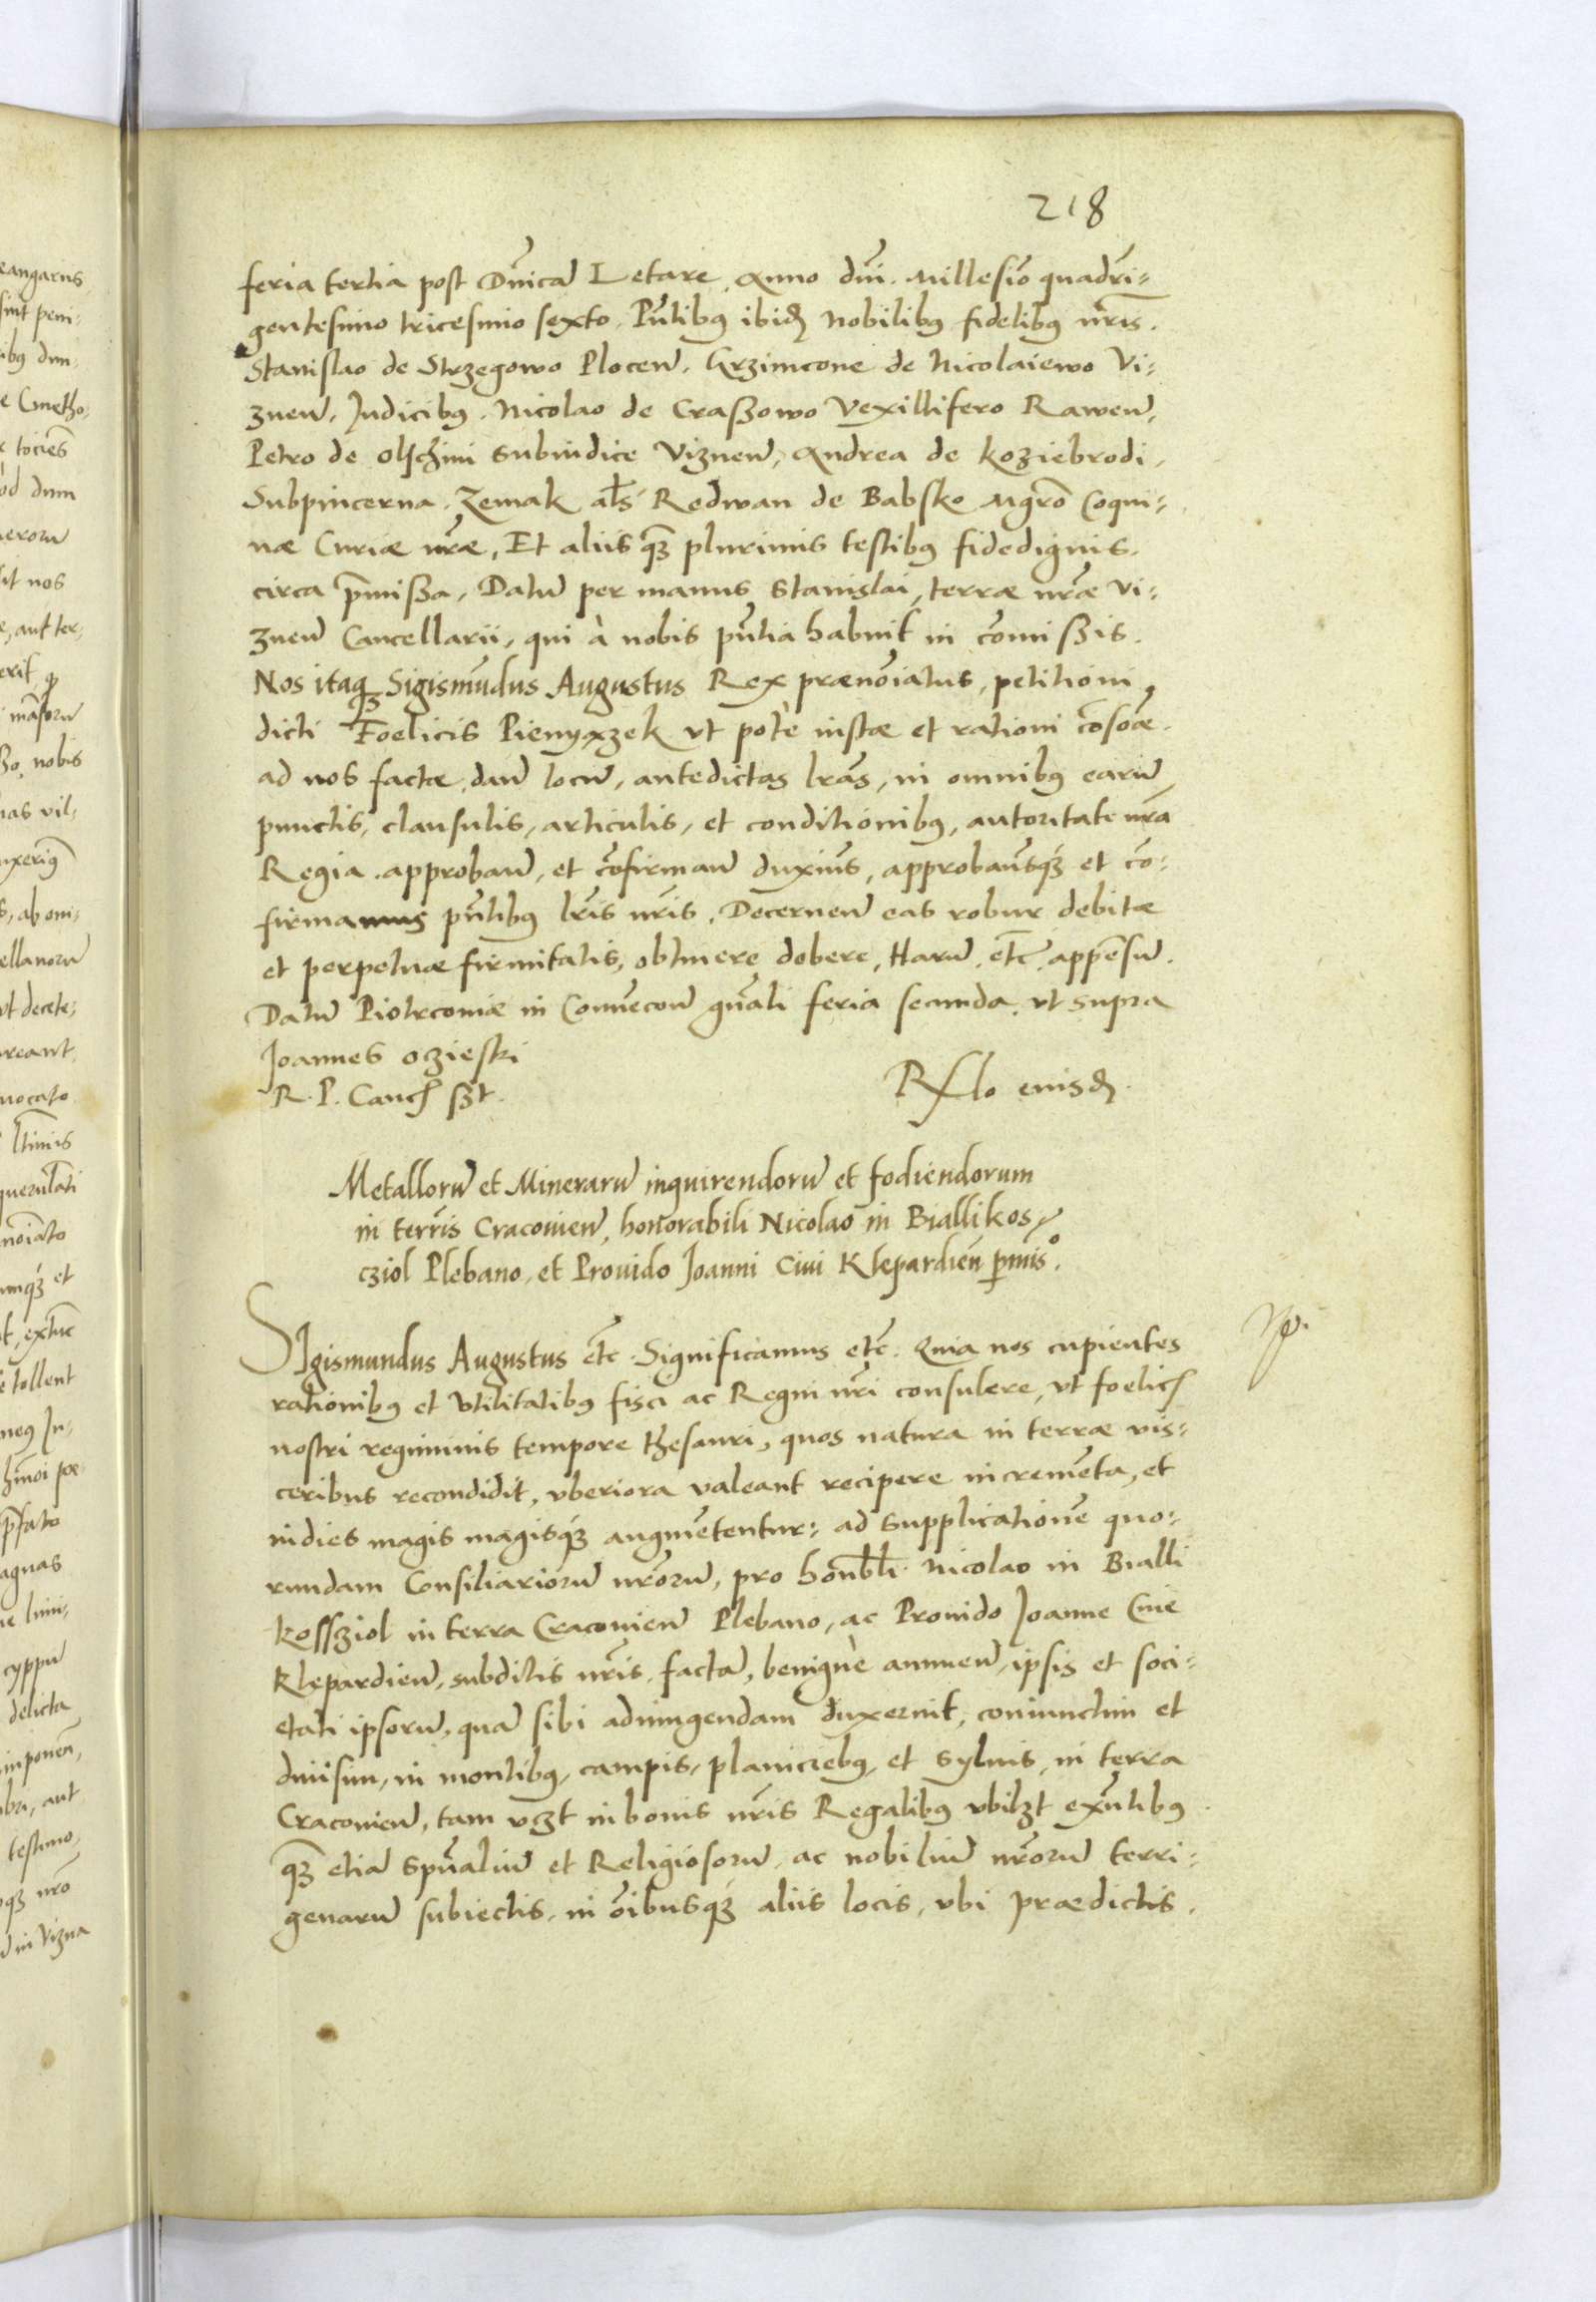 218
feria tertia post Dn̄icā Letare, Anno dn̄i. Millesīo quadrī-
gentesimo tricesimo sexto. Pn̄tibꝰ ibid. Nobilibꝰ fidelibꝰ nr̄is.
Stanislao de Strzegowo Plocen̄. Grzimcone de Nicolaiewo Vi-
znen̄. Judicibꝰ. Nicolao de Craszowo Vexillifero Rawen̄,
Petro de Olschini Subiudice Viznen̄, Andrea de Koziebrodi,
Subpincerna. Zemak al̄s Redwan de Babsko Mgrō Coqui-
næ Curiæ nr̄æ, Et aliis qꝫ plurimis testibꝰ fidedignis.
circa p̄missa, Datū per manus Stanislai, terræ nr̄æ Vi-
znen̄ Cancellarii, qui à nobis pn̄tia habuit in cōmissis.
Nos itaqꝫ Sigismūdus Augustus Rex prænoīatus, petitioni
dicti Foelicis Pienyazek vt potè iustæ et rationi cōsoæ.
ad nos factæ, dan̄ locū, antedictas lrās, in omnibꝰ earū,
punctis, clausulis, articulis, et conditionibꝰ, autoritate nrā
Regia. approban̄, et cōfirman̄ duxim̄s, approbam̄sqꝫ et cō-
firmamus pn̄tibꝰ lrīs nrīs, Decernen̄ eas robur debitæ
et perpetuæ firmitatis, obtinere debere, Harū, etc̄. app̄ensū.
Datū Piotrcoviæ in Conuēcon̄ gn̄ali feria secunda, vt supra
Joannes Ozieski
R. P. Canc. sꝫt.
Rel̄o eiusd.
Metallorū et Minerarū inquirendorū et fodiendorum
in terrīs Cracouien̄, honorabili Nicolao in Biallikos-
cziol Plebano, et Prouido Joanni Ciui Klepardien̄ p̄mis°.
SIgismundus Augustus etc̄. Significamus etc̄. Quia nos cupientes
rationibꝰ et vtilitatibꝰ fisci ac Regni nr̄i consulere, vt foelic.
nostri regiminis tempore thesauri, quos natura in terræ vis-
ceribus recondidit, vberiora valeant recipere incremēta, et
indies magis magisqꝫ augmētentur: ad supplicationē quo-
rundam Consiliariorū nrōrū, pro honb̄li. Nicolao in Bialli
kossziol in terra Cracouien̄ Plebano, ac Prouido Joanne Ciue
Klepardien̄, subditis nrīs, factā, benignè annuen̄, ipsis et soci-
etati ipsorū, quā sibi adiungendam duxerint, coniunctim et
diuisim, in montibꝰ, campis, planiciebꝰ, et syluis, in terra
Cracouien̄, tam vꝫt in bonis nrīs Regalibꝰ vbilꝫt exn̄tibꝰ.
qꝫ etiā spūaliū et Religiosorū, ac nobiliū nrōrū terri-
genarū subiectis, in oībusqꝫ aliis locis, vbi prædictis.